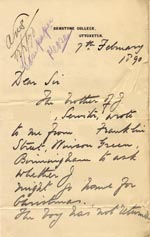 DENSTONE COLLEGE,
UTTOXETER.
7th February
1890
Dear Sir
The mother of J
Smith, wrote
to me from Franklin
Street Winson Green,
Birmingham to ask
whether J
might go home for
Christmas.
The boy has not returned